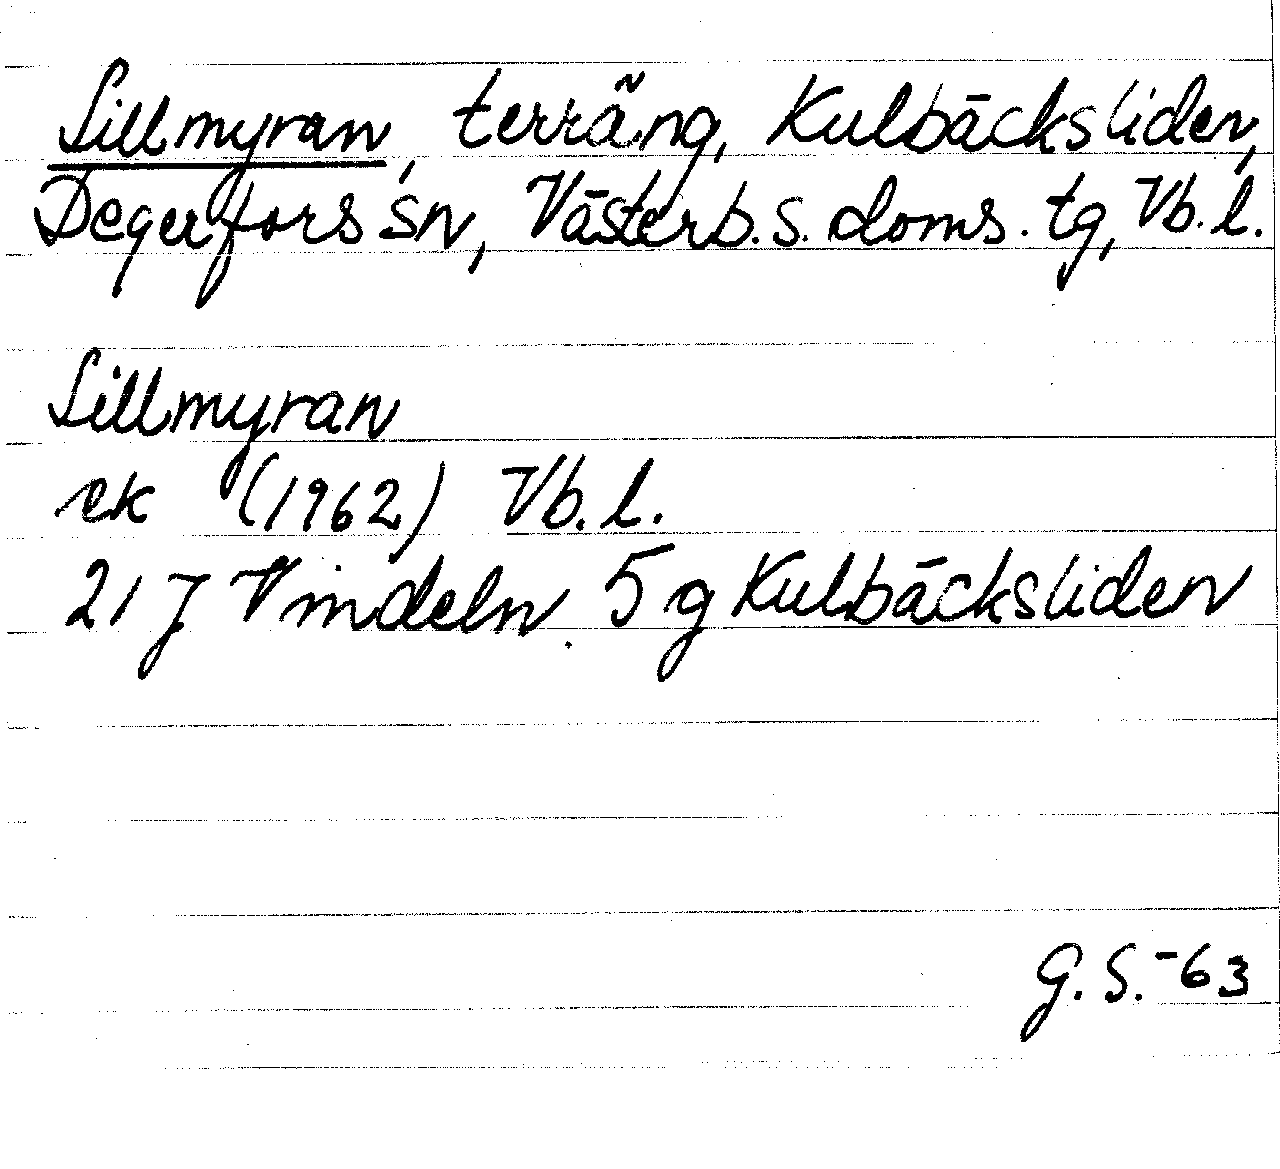 Lillmyran, terräng, Kulbäcksliden,
Degerfors sn, Västerb. s. doms. tg, Vb. l.
Lillmyran
ek (1962) Vb. l.
21 J Vindeln. 5 g Kulbäcksliden
G. S. -63